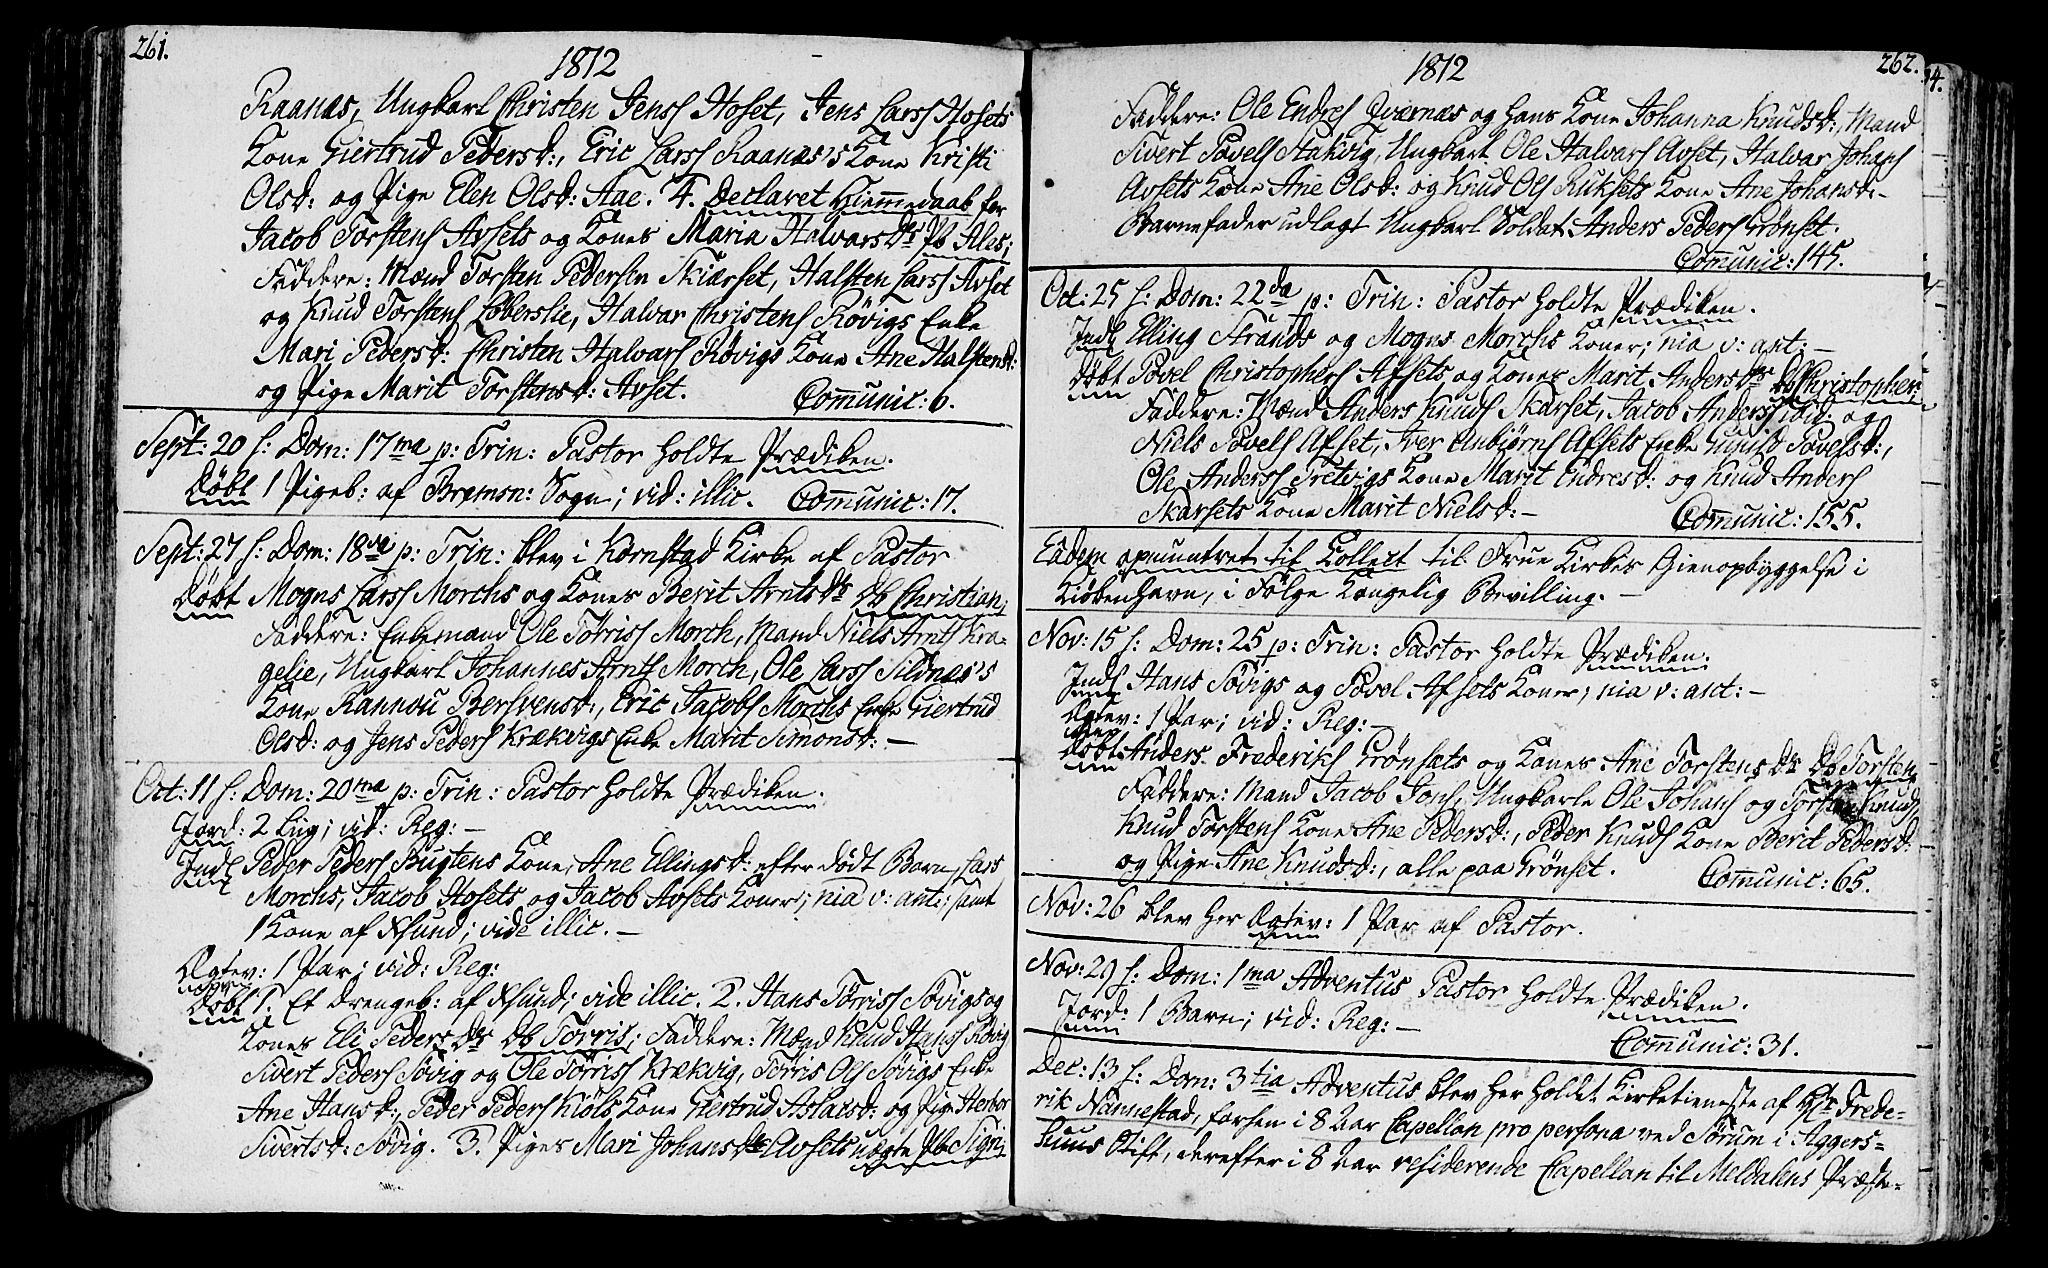 261.
1812
Raanæs, Ungkarl Christen Jenss Hoset, Jens Larss Hosets
Kone Giertrud Pedersd:, Eric Larss Raanæs's Kone Kristi
Olsd: og Pige Elen Olsd: Aae. 4. Declaret Hiemmedaab for
Jacob Torstens Avsets og Kones Maria HalvarsDr Pb Ales;
Faddere: Mænd Torsten Pedersen Skiærset, Halsten Larss Avset
og Knud Torstens Loberslie, Halvar Christens Røvigs Enke
Mari Pedersd: Christen Halvars Røvigs Kone Ane Halstensd:
og Pige Marit Torstensd: Avset. Com̅unic: 6.
Sept: 20 s: Dom: 17ma p: Trin: Pastor holdte Prædiken.
Døbt 1 Pigeb: af Bremsn: Sogn; vid: illic. Com̅unic: 17.
Sept: 27 s: Dom: 18va p: Trin: blev i Kornstad Kirke af Pastor
Døbt Mogns Larss Morchs og Kones Berit ArntsDr Db Christian;
Faddere: Enkemand Ole Tørriss Morch, Mand Niels Arnts Kra-
gelie, Ungkarl Johannes Arnts Morch, Ole Larss Sildnæs's
Kone Rannou Bersvensd:, Eric Jacobs Morchs Enke Giertrud
Olsd: og Jens Peders Krækvigs Enke Marit Simonsd: —
Oct: 11 s: Dom: 20ma p: Trin: Pastor holdte Prædiken.
Jord: 2 Liig; vid: Reg: —
Indl Peder Peders Bugtens Kone, Ane Ellingsd: efter dødt Barn, Lars
Morchs, Jacob Hosets og Jacob Avsets Koner; nia v: ant: samt
1 Kone af Øsund; vide illic. —
Ægtev: 1 Par; vid: Reg:
Døbt 1. Et Drengeb: af Øsund; vide illic. 2. Hans Tørriss Søvigs og
Kones Eli PedersDr Db Tørris; Faddere: Mænd Knud Hanss Søvig
Sivert Peders Søvig og Ole Tørriss Krækvig, Tørris Ols Søvigs Enke
Ane Hansd:, Peder Peders Kiøls Kone Giertrud Aslacsd: og Pige Herbor
Sivertsd: Søvig. 3. Piges Mari JohansDr Avsets uægte Pb Signi;
262.
1812
Faddere: Ole Endres Qværnæs og hans Kone Johanna Knudsd:, Mand
Sivert Povels Stakvig, Ungkarl Ole Halvars Avset, Halvar Johans
Avsets Kone Ane Olsd: og Knud Ols Ruksets Kone Ane Johansd: -
Barnefader udlagt Ungkarl Soldat Anders Peders Grønset.
Com̅unic: 145.
Oct: 25 s: Dom: 22da p: Trin: Pastor holdte Prædiken.
Indl Elling Strands og Mogns Morchs Koner; nia v: ant: —
Døbt Povel Christophers Afsets og Kones Marit AndersDr Db Christopher;
Faddere: Mænd Anders Knuds Skarset, Jacob Anderss ibid: og
Niels Povels Afset, Iver Anbiørns Afsets Enke Gunild Povelsd:,
Ole Anderss Tretvigs Kone Marit Endresd: og Knud Anders
Skarsets Kone Marit Nielsd: — Com̅unic: 155.
Eâdem opmuntret til Collect til Frue Kirkes Gienopbyggelse i
Kiøbenhavn, i Følge Kongelig Bevilling. —
Nov: 15 s: Dom: 25 p: Trin: Pastor holdte Prædiken.
Indl Hans Søvigs og Povel Afsets Koner; nia v: ant: —
Ægtev: 1 Par; vid: Reg: —
Døbt Anders Frederiks Grønsets og Kones Ane TorstensDr Db Torsten
Faddere: Mand Jacob Jons, Ungkarle Ole Johans og Torsten Knuds
Knud Torstens Kone Ane Pedersd:, Peder Knuds Kone Berit Pedersd:
og Pige Ane Knudsd:, alle paa Grønset. Com̅unic: 65.
Nov: 26 blev her Ægtev: 1 Par af Pastor.
Nov: 29 s: Dom: 1ma Adventus Pastor holdte Prædiken.
Jord: 1 Barn; vid: Reg: —
Com̅unic: 31.
Dec: 13 s: Dom: 3tia Adventus blev her holdt Kirketieneste af Hr Frede-
rik Nannestad, forhen i 8 Aar Capellan pro persona ved Sørum i Aggers-
huus Stift, derefter i 8 Aar residerende Capellan til Meldalens Præste-